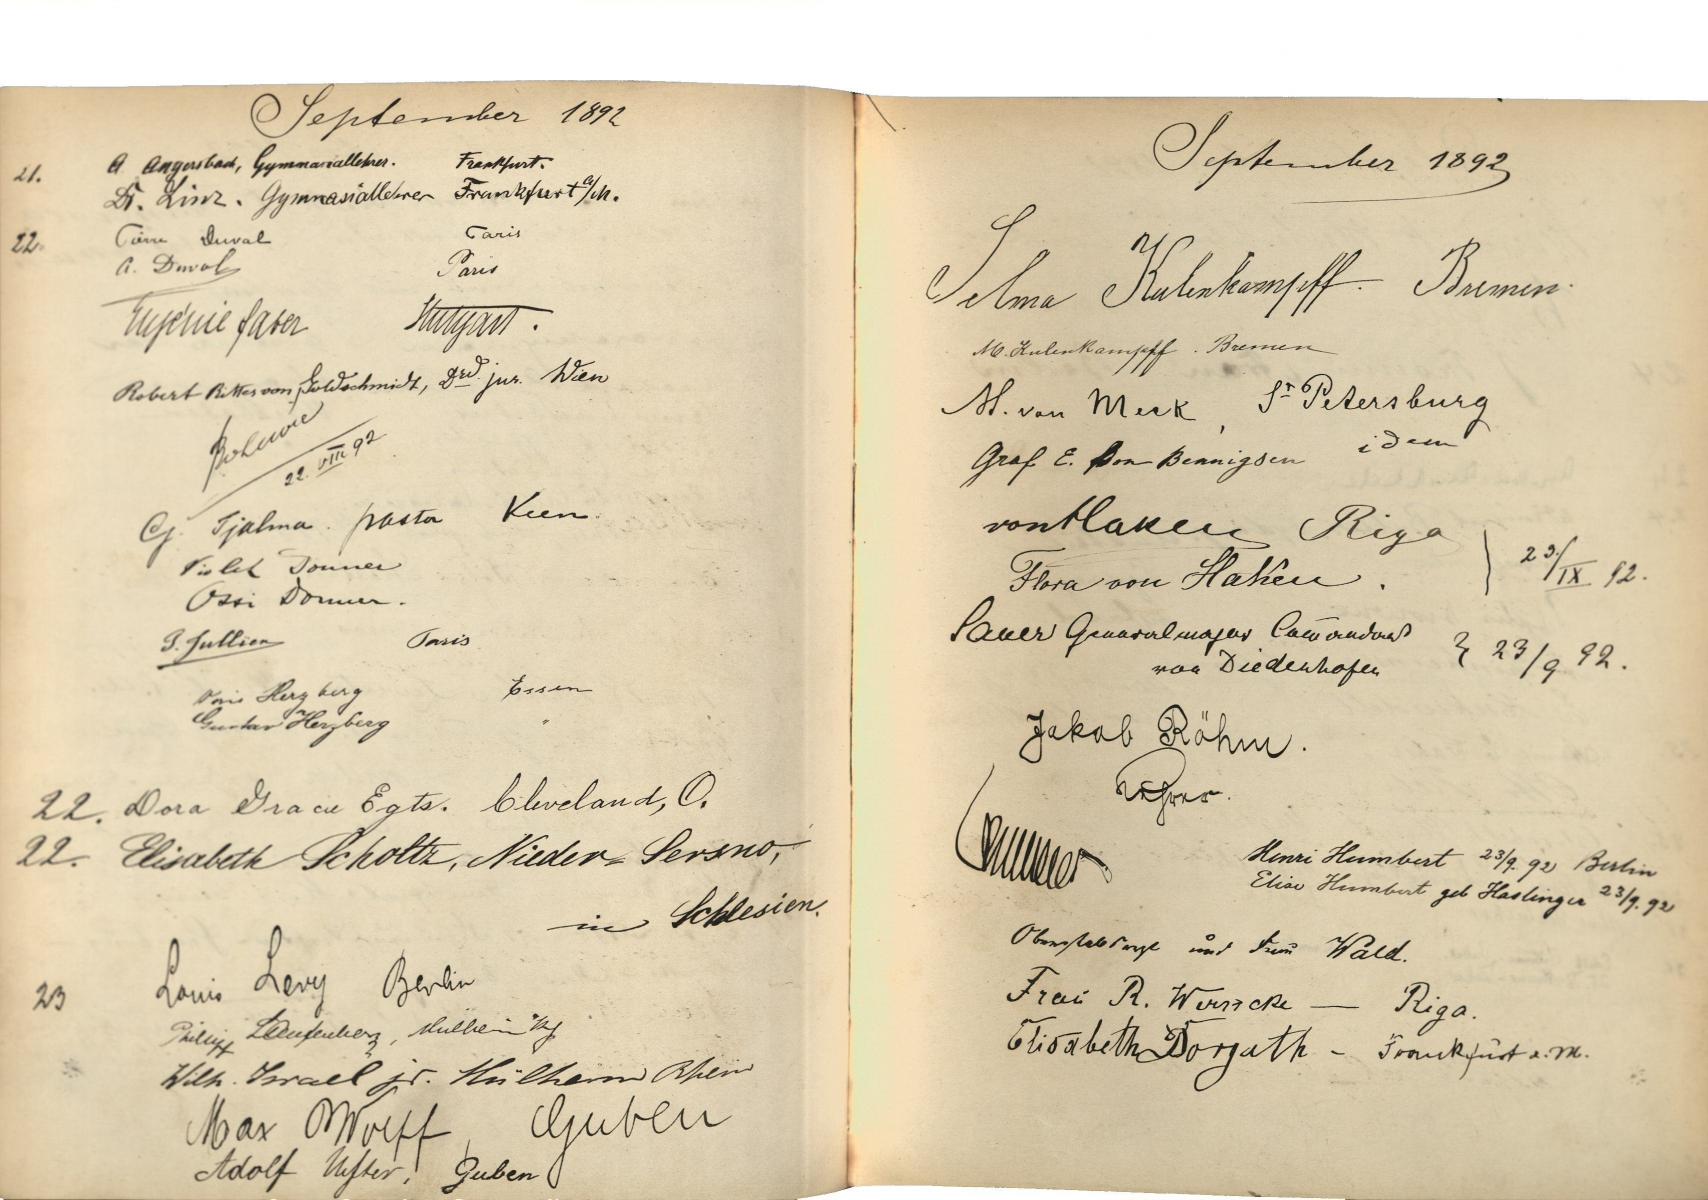 September 1892
21. A Angersbach, Gymnasiallehrer. Frankfurt.
Dr. Linz. Gymnasiallehrer Frankfurt a/M.
22. Pierre Duval Paris
A. Duval Paris
Eugénie Faber Stuttgart.
Robert Ritter von Goldschmidt, Drd. jur. Wien
22. VIII 92
Tjalma. pastor
Violet Donner
Ossi Donner.
Paris
Herzberg Essen
Gustav Herzberg "
22. Dora Gracie Egts. Cleveland, O.
22. Elisabeth Scholtz, Nieder=
in Schlesien.
23 Louis Levy Berlin
Philipp
Wilh. Israel jr. Mülheim Rhein
Max Wolff, Guben
Adolf Guben
September 1892
Selma Kulenkampff. Bremen.
M. Kulenkampff. Bremen
M. von Meck, St. Petersburg
Graf E. von Bennigsen idem
von Haken Riga
Flora von Haken. 23/IX 92.
Sauer Generalmajor
von Diedenhofen 23/9 92.
Jakob Röhm.
Henri Humbert 23/9. 92 Berlin
Elise Humbert geb Haslinger 23/9. 92
und Frau Wald.
Frau R. Riga.
Elisabeth Frankfurt a. M.